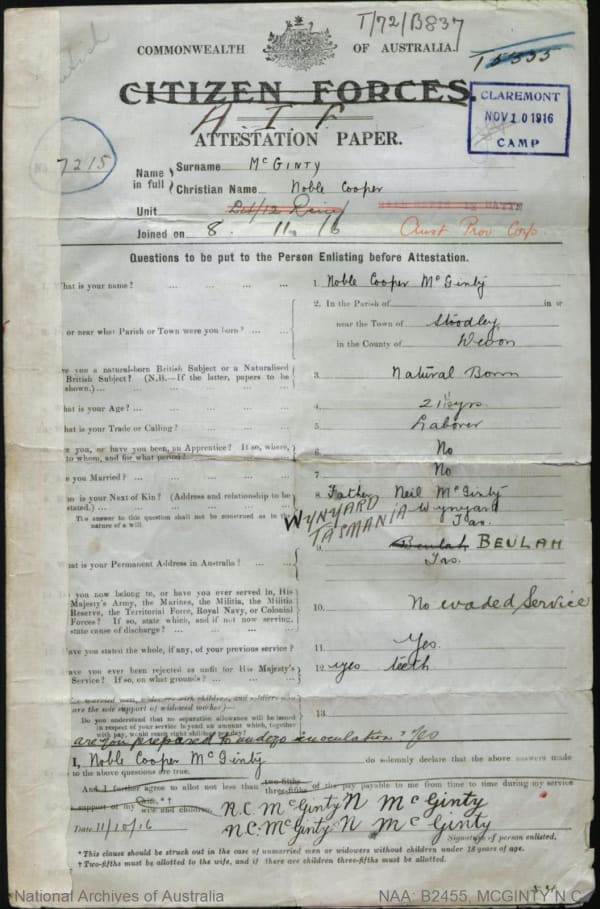 T/72/B837
COMMONWEALTH OF AUSTRALIA.
CITIZEN FORCES.
A.I.F.
ATTESTATION PAPER.
CLAREMONT
NOV 10 1916
CAMP
No 7215
Name in full
Surname McGINTY
Christian Name Noble Cooper
Unit
Joined on 8. 11. 16 Aust Prov Corp
Questions to be put to the Person Enlisting before Attestation.
hat is your name? ... 1. Noble Cooper McGinty
2. In the Parish of in or
or near what Parish or Town were you born? ... near the Town of Stoodley
in the County of Devon
re you a natural-born British Subject or a Naturalised
British Subject? (N.B.—If the latter, papers to be
shown.) ... 3. Natural Born
hat is your Age? ... 4. 21 yrs.
hat is your Trade or Calling? ... 5. Laborer
re you, or have you been, an Apprentice? If so, where,
to whom, and for what period? 6. No
re you Married? ... 7. No
ho is your Next of Kin? (Address and relationship to be
stated.) ... 8. Father Neil McGinty
The answer to this question shall not be construed as in the
nature of a will.
Wynyard
Tas.
WYNYARD
TASMANIA
hat is your Permanent Address in Australia? ... 9. Beulah BEULAH
Tas.
you now belong to, or have you ever served in, His
Majesty's Army, the Marines, the Militia, the Militia
Reserve, the Territorial Force, Royal Navy, or Colonial
Forces? If so, state which, and if not now serving,
state cause of discharge? ... 10. No evaded Service
ave you stated the whole, if any, of your previous service? 11. Yes.
ave you ever been rejected as unfit for His Majesty's
Service? If so, on what grounds? ... 12. yes teeth
Do you understand that no separation allowance will be issued
in respect of your service beyond an amount which, together
with pay, would reach eight shillings per day? 13.
are you prepared to undergo inoculation? Yes
I, Noble Cooper McGinty do solemnly declare that the above answers made
to the above questions are true.
And I further agree to allot not less than two-fifths
three-fifths of the pay payable to me from time to time during my service
support of my wife and children.
N.C. McGinty N McGinty
Date 11/10/16 N.C. McGinty N McGinty
Signature of person enlisted.
* This clause should be struck out in the case of unmarried men or widowers without children under 18 years of age.
† Two-fifths must be allotted to the wife, and if there are children three-fifths must be allotted.
National Archives of Australia NAA: B2455, MCGINTY N C